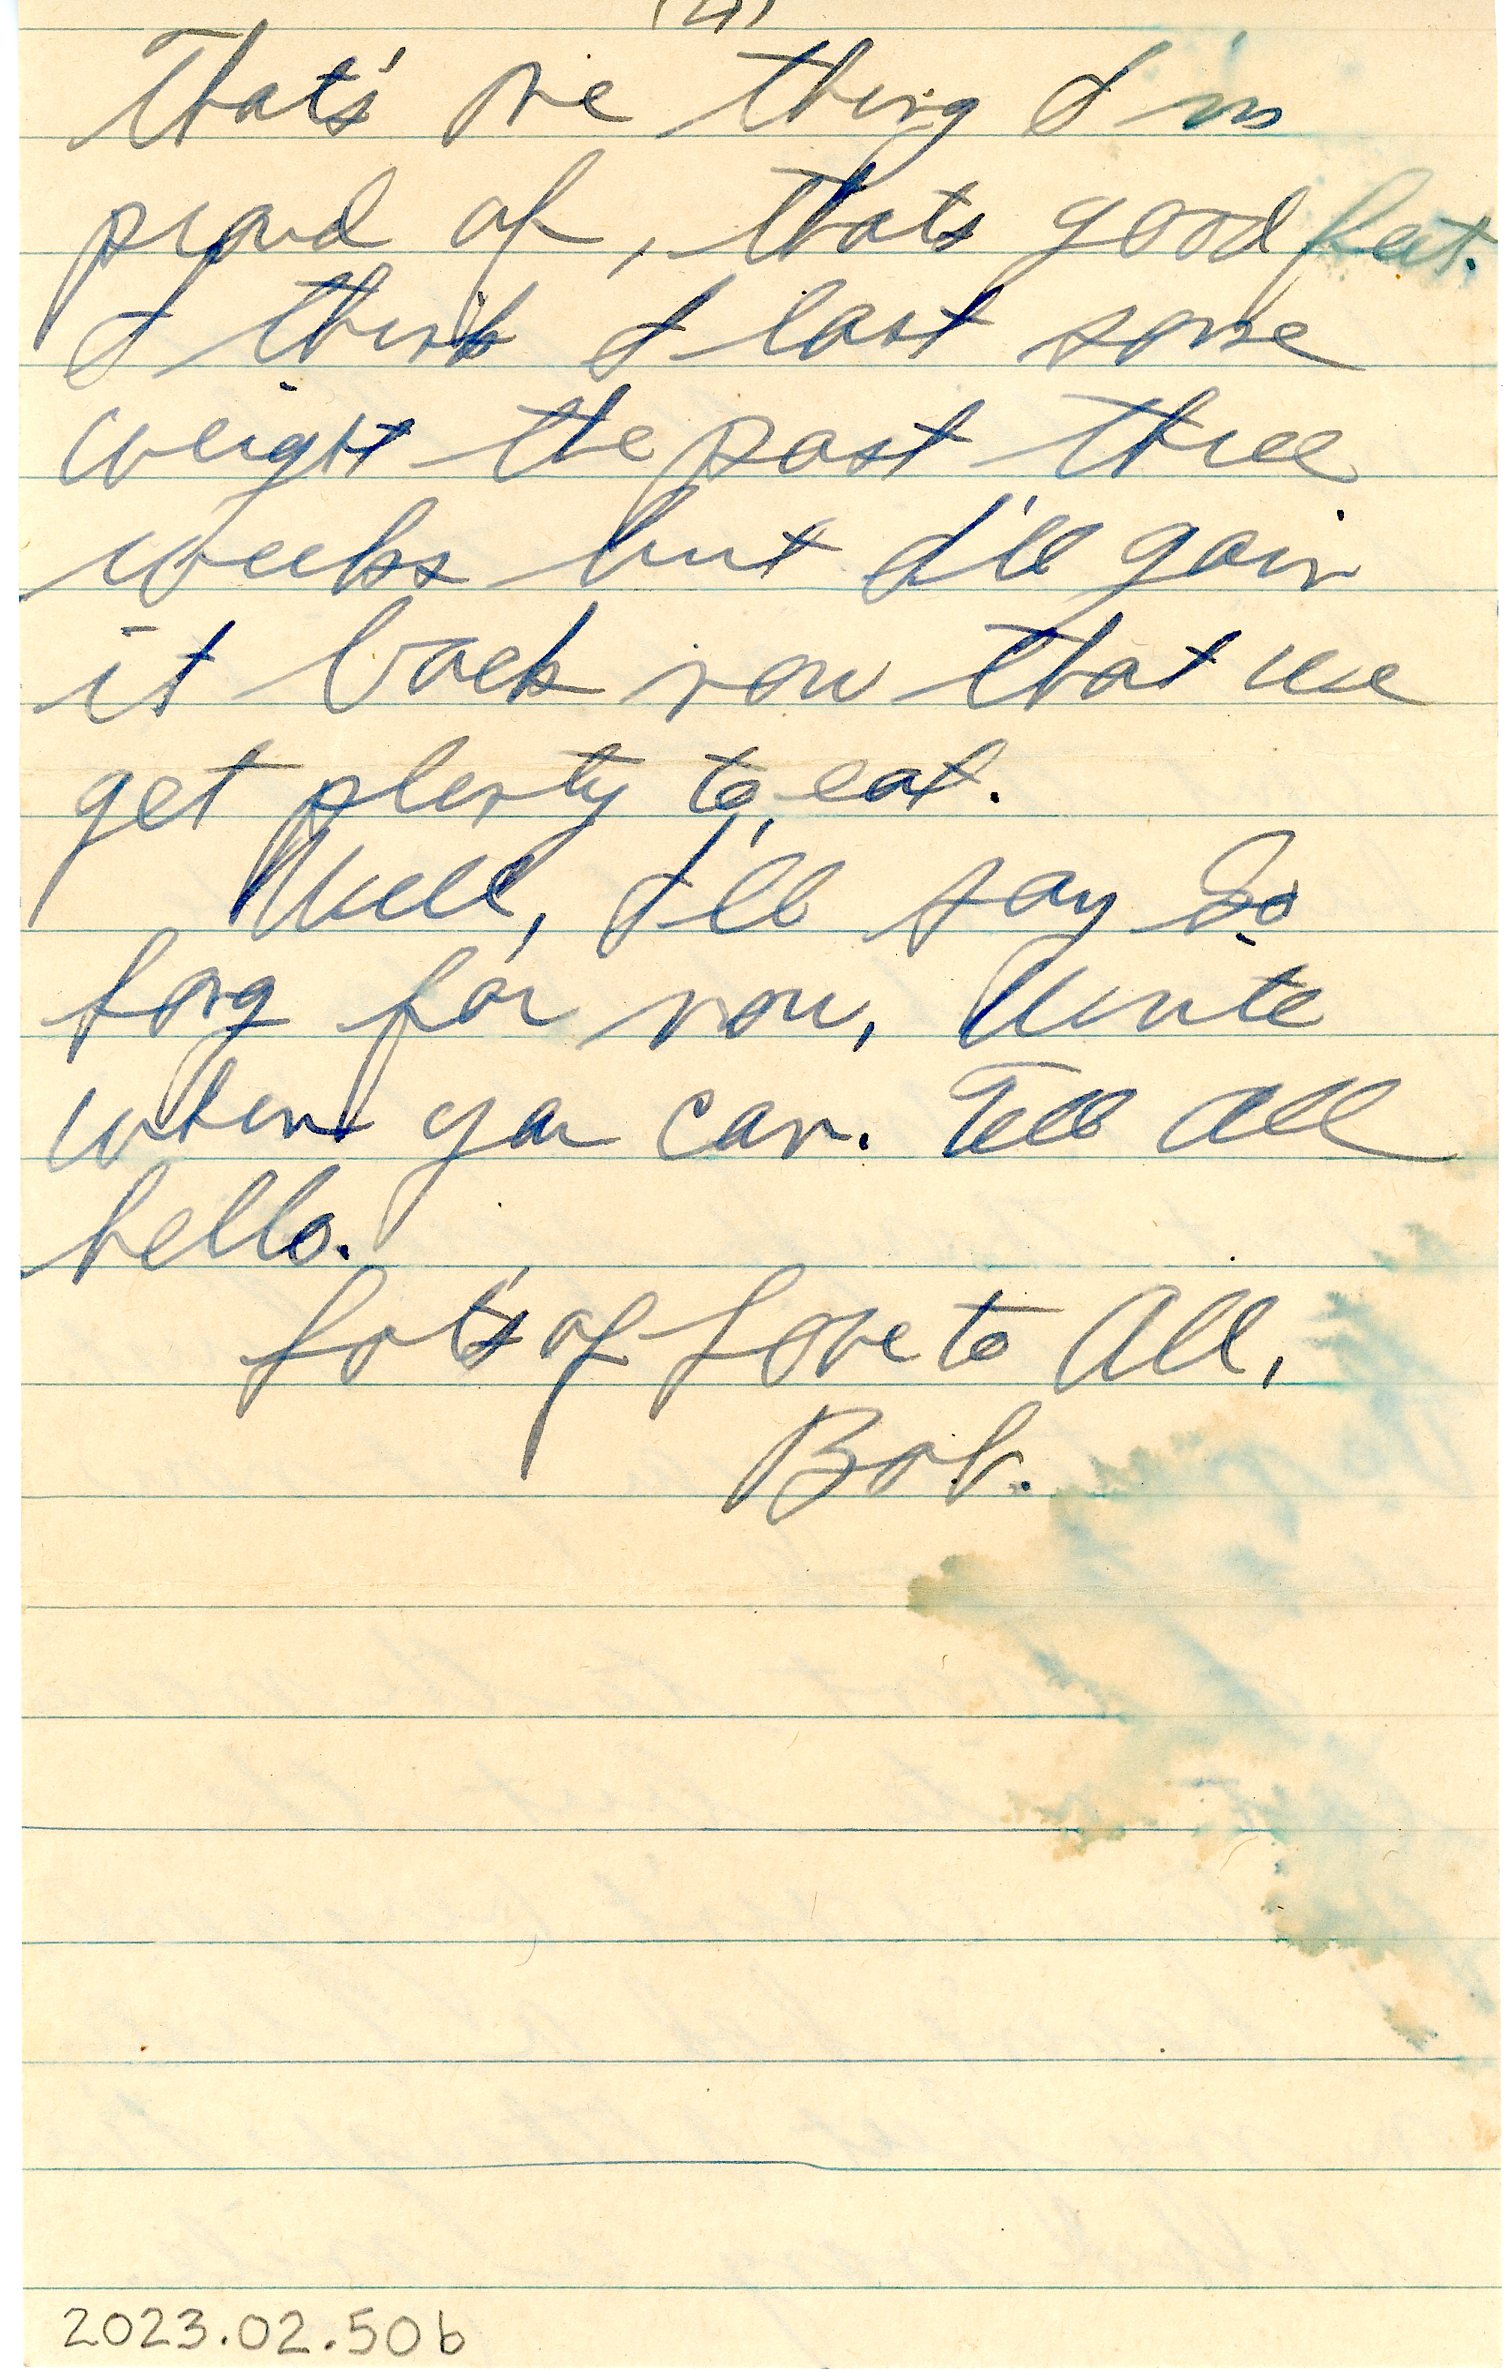 (4)
That's one thing I'm
proud of, thats good feet.
I think I lost some
weight the past three
weeks but I'll gain
it back now that we
get plenty to eat.
Well, I'll say So
Long for now, Write
when you can. Tell all
hello.
Lots of Love to All,
Bob.
2023.02.50b